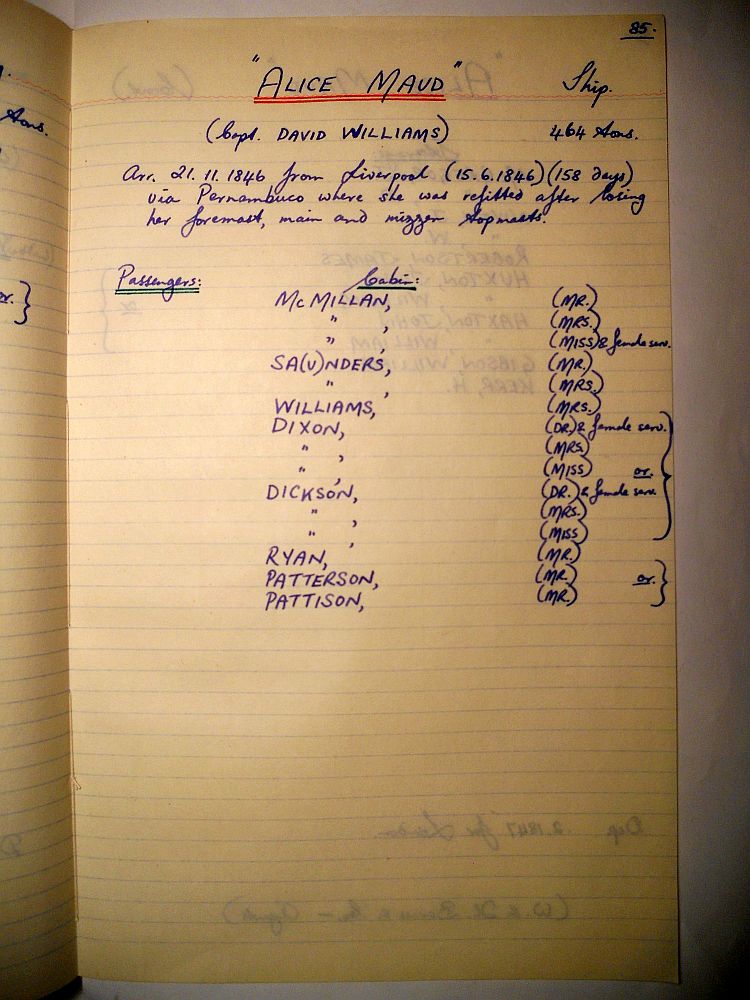 85.
"ALICE MAUD" Ship.
(Capt. DAVID WILLIAMS) 464 tons.
Arr. 21.11.1846 from Liverpool (15.6.1846) (158 days)
via Pernambuco where she was refitted after losing
her foremast, main and mizzen topmasts.
Passengers: Cabin:
McMILLAN, (MR.)
" , (MRS.)
" , (MISS) & female serv.
SA(U)NDERS, (MR.)
" , (MRS.)
WILLIAMS, (MRS.)
DIXON, (DR.) & female serv.
" , (MRS.)
" , (MISS) or.
DICKSON, (DR.) & female serv.
" , (MRS.)
" , (MISS)
RYAN, (MR.)
PATTERSON, (MR.) or.
PATTISON, (MR.)